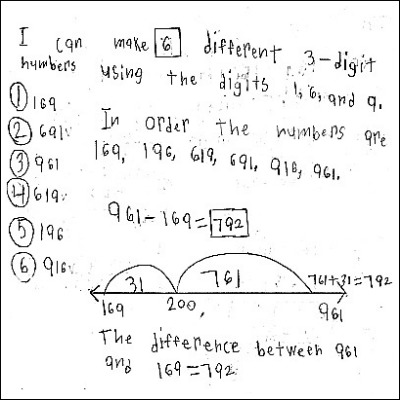 I can make 6 different 3-digit
numbers using the digits 1, 6, and 9.
① 169
② 691
③ 961
④ 619
⑤ 196
⑥ 916
In order the numbers are
169, 196, 619, 691, 916, 961.
961-169=792
31 761 761+31=792
169 200, 961
The difference between 961
and 169=792